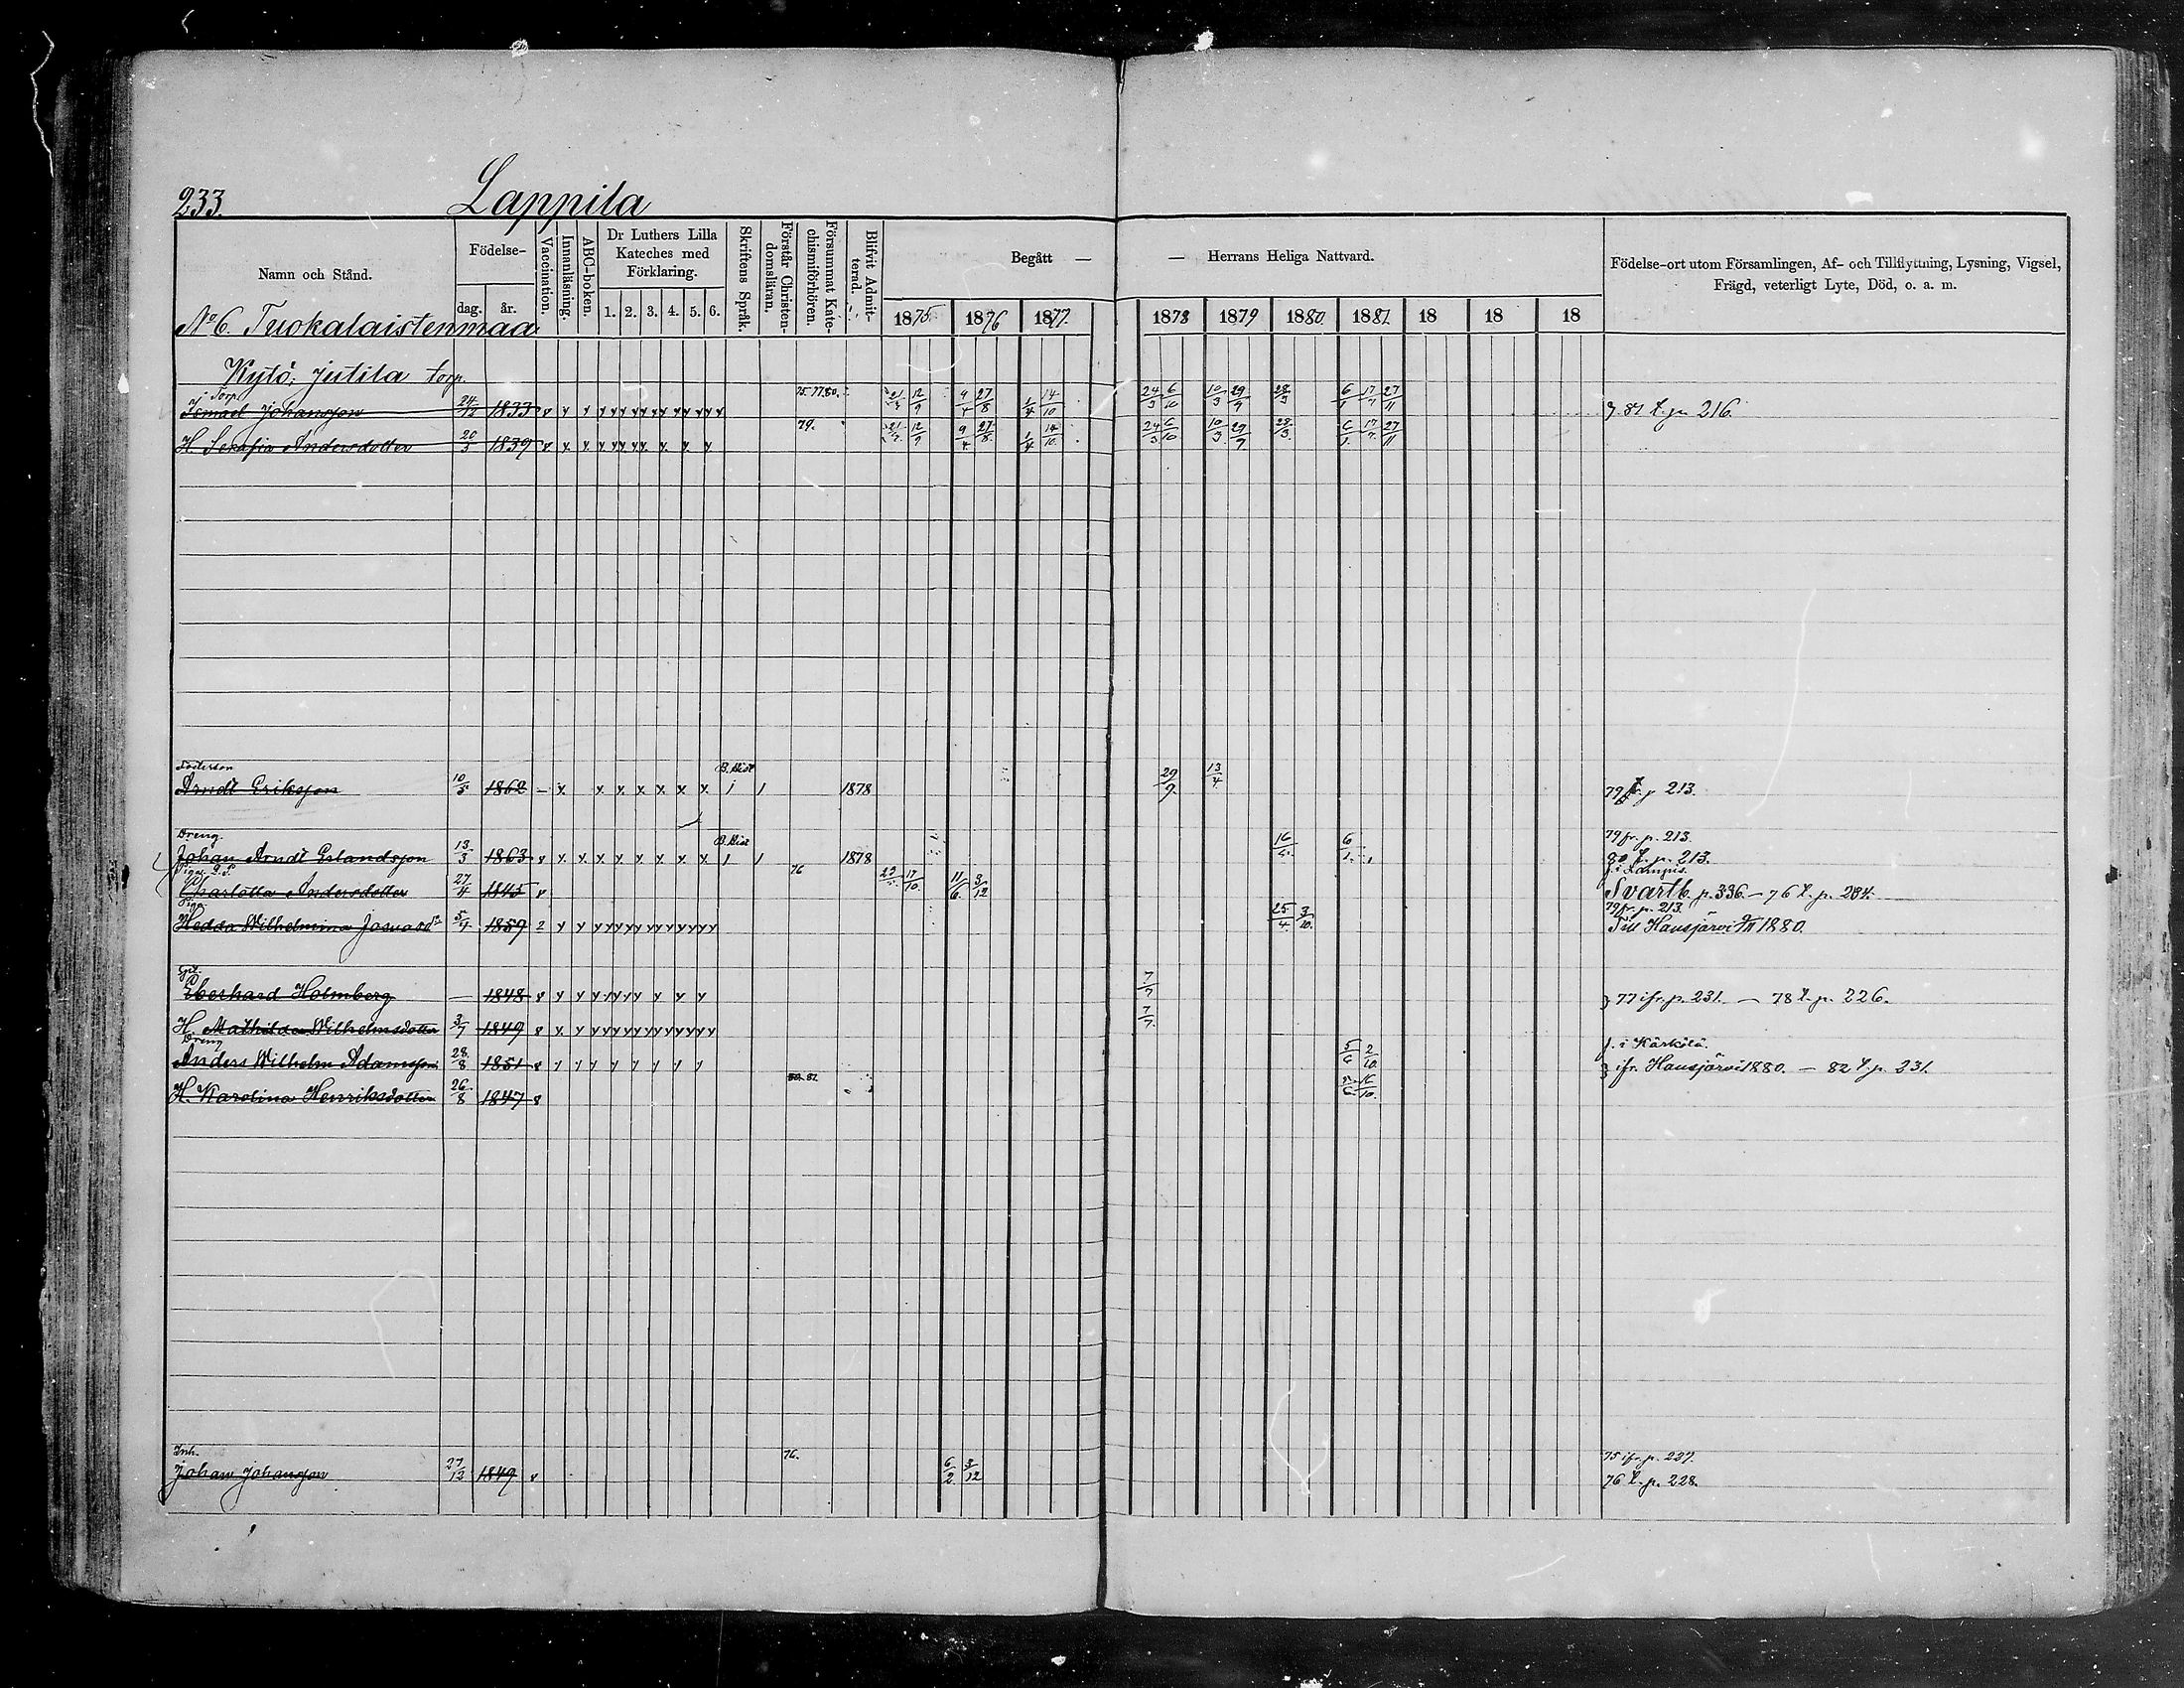 233.
Lappila
Namn och Stånd.
Födelse-
dag.
år.
Vaccination.
Innanläsning.
ABC-boken.
Dr Luthers Lilla
Kateches med
Förklaring.
1. 2. 3. 4. 5. 6.
Skriftens Språk.
Förstår Christen-
domsläran.
Försummat Kate-
chismiförhören.
Blifvit Admit-
terad.
Begått —
— Herrans Heliga Nattvard.
1875. 1876 1877. 1878 1879 1880. 1881. 18 18 18
Födelse-ort utom Församlingen, Af- och Tillflyttning, Lysning, Vigsel,
Frägd, veterligt Lyte, Död, o. a. m.
No 6. Tuokalaistenmaa
Kytö, Jutila torp.
Torp.
Ismael Johansson 24/12 1833 75. 77. 80. 12/9 9/4 27/8 1/4 14/10 24/3 6/10 10/3 29/9 28/3 6/1 17/7 27/11 81 t. p. 216.
H. Serafia Andersdotter 20/3 1839 79. 12/9 9/4 27/8 1/4 14/10 24/3 6/10 10/3 29/9 28/3 6/1 17/7 27/11
Fosterson
Arndt Eriksson 10/5 1862 B. Hist 1878 29/9 13/4 79 t. p 213.
Dreng.
Johan Arndt Erlandsson 13/3 1863 B. Hist 1878 16/5 6/1 79 fr. p. 213.
80 t. p. 213.
Charlotta Andersdotter 27/4 1845 76 17/10 11/6 3/12 Svartb. p. 336. – 76 t. p. 234.
Piga
Hedda Wilhelmina Josuadr 5/4 1859 2 25/4 3/10 79 fr. p. 213.
Till Hausjärvi 1880.
Eberhard Holmberg — 1848 7/7 77 ifr. p. 231. — 78 t. p. 226.
H. Mathilda Wilhelmsdotter 3/7 1849 7/7
Dreng
Anders Wilhelm Adamsson 28/8 1851 5/6 2/10 f. i Kärkölä.
ifr. Hausjärvi 1880. — 82 t. p. 231.
H. Karolina Henriksdotter 26/8 1847 80. 81.
Inh.
Johan Johansson 27/12 1849 76. 6/2 3/12 75 ifr. p. 227.
76 t. p. 228.